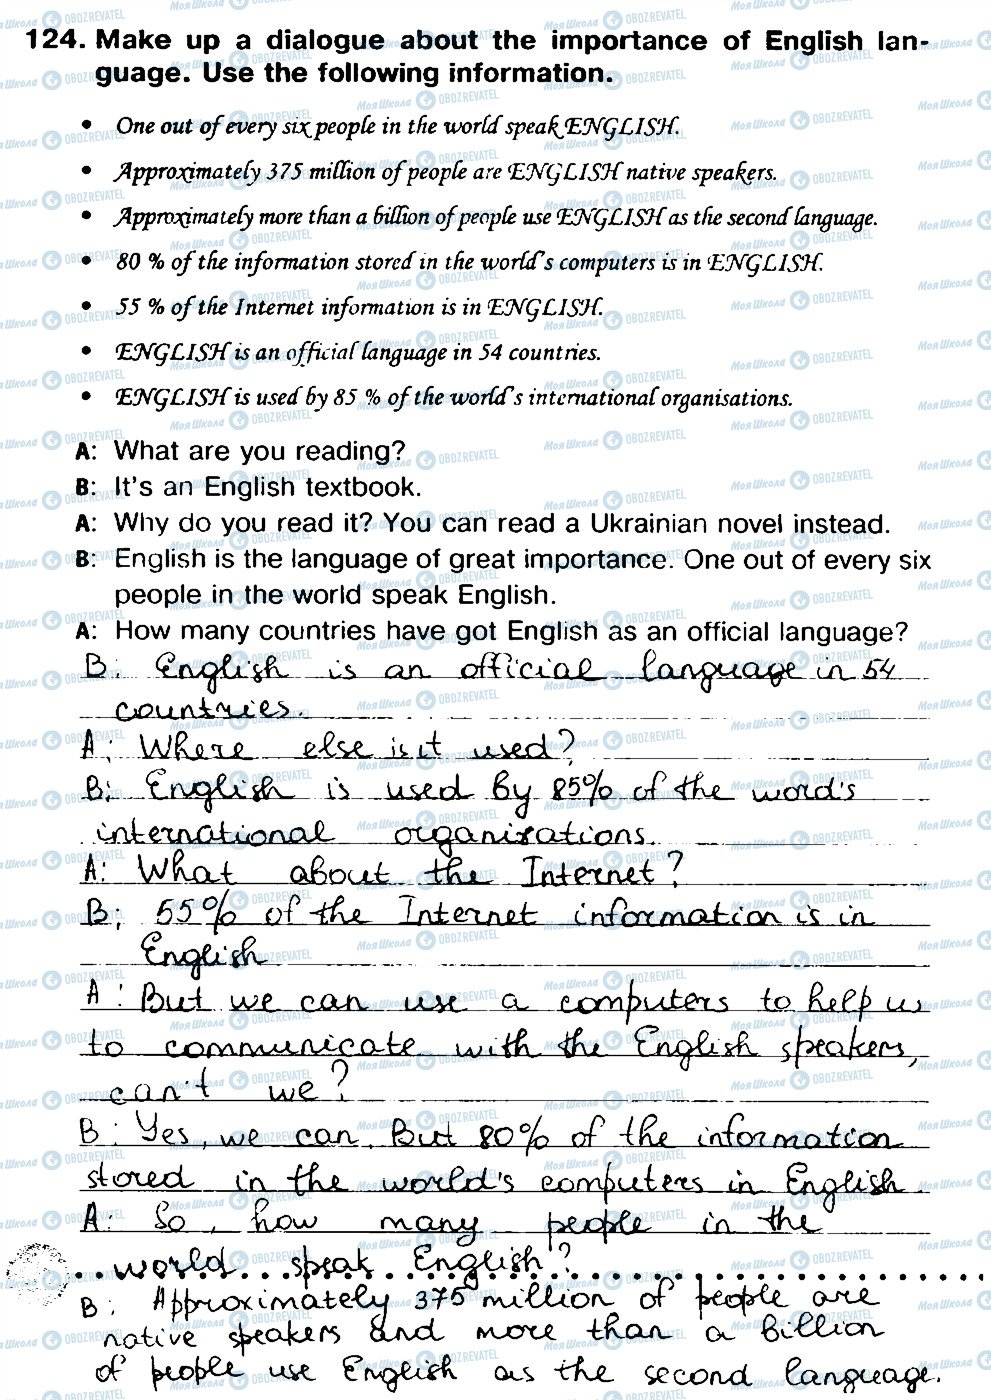 124. Make up a dialogue about the importance of English lan-
guage. Use the following information.
• One out of every six people in the world speak ENGLISH.
• Approximately 375 million of people are ENGLISH native speakers.
• Approximately more than a billion of people use ENGLISH as the second language.
• 80 % of the information stored in the world's computers is in ENGLISH.
• 55 % of the Internet information is in ENGLISH.
• ENGLISH is an official language in 54 countries.
• ENGLISH is used by 85 % of the world's international organisations.
A: What are you reading?
B: It's an English textbook.
A: Why do you read it? You can read a Ukrainian novel instead.
B: English is the language of great importance. One out of every six
people in the world speak English.
A: How many countries have got English as an official language?
B: English is an official language in 54
countries.
A: Where else is it used?
B: English is used by 85% of the word's
international organisations.
A: What about the Internet?
B: 55% of the Internet information is in
English
A: But we can use a computers to help us
to communicate with the English speakers,
can't we?
B: Yes, we can. But 80% of the information
stored in the world's computers in English.
A: So, how many people in the
world speak English?
B: Approximately 375 million of people are
native speakers and more than a billion
of people use English as the second language.